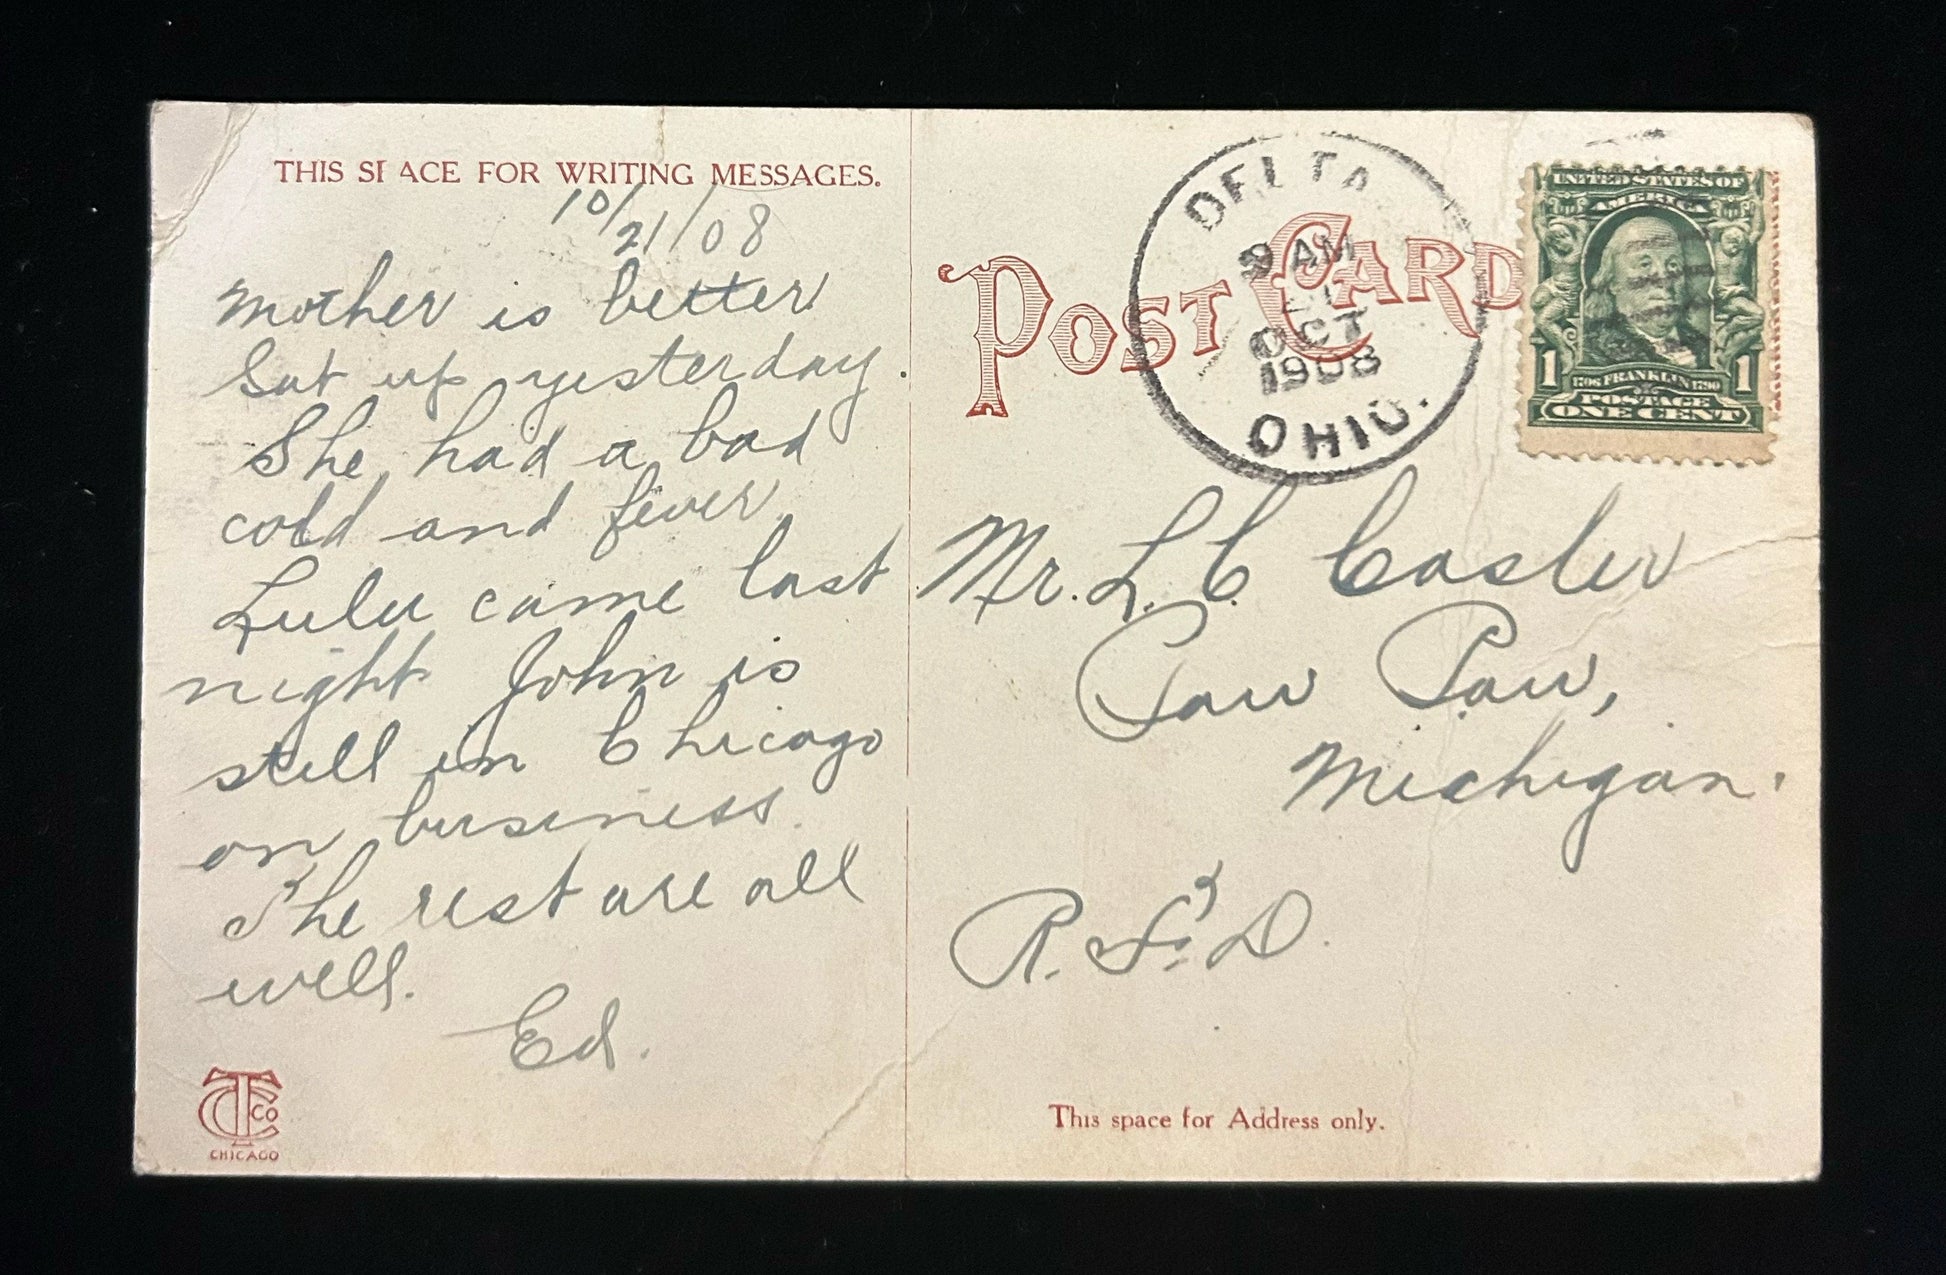 THIS SPACE FOR WRITING MESSAGES.
10/21/08
Mother is better
Sat up yesterday.
She had a bad
cold and fever
Lulu came last
night John is
still in Chicago
on business.
The rest are all
well.
Ed.
CT Co
CHICAGO
POST CARD
DELTA
AM
21
OCT
1908
OHIO.
UNITED STATES OF
AMERICA
1 1
1706 FRANKLIN 1790
POSTAGE
ONE CENT
Mr. L. C. Casler
Paw Paw,
Michigan.
R. F. D. 3
This space for Address only.